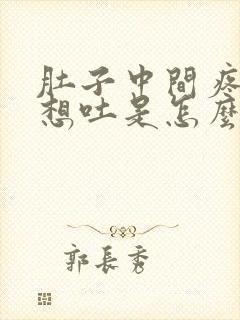 肚子中間疼
想吐是怎麼
郭長秀